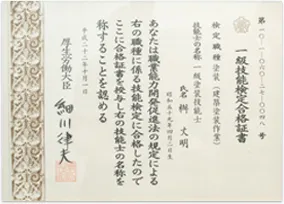 第一〇一-〇六〇-二七-〇〇四八号
一級技能検定合格証書
検定職種 塗装(建築塗装作業)
技能士の名称 一級塗装技能士
氏名 柳 文明
昭和五十九年四月三日生
あなたは職業能力開発促進法の規定による
右の職種に係る技能検定に合格したので
ここに合格証書を授与し右の技能士の名称を
称することを認める
平成二十二年十月一日
厚生労働大臣
細川律夫